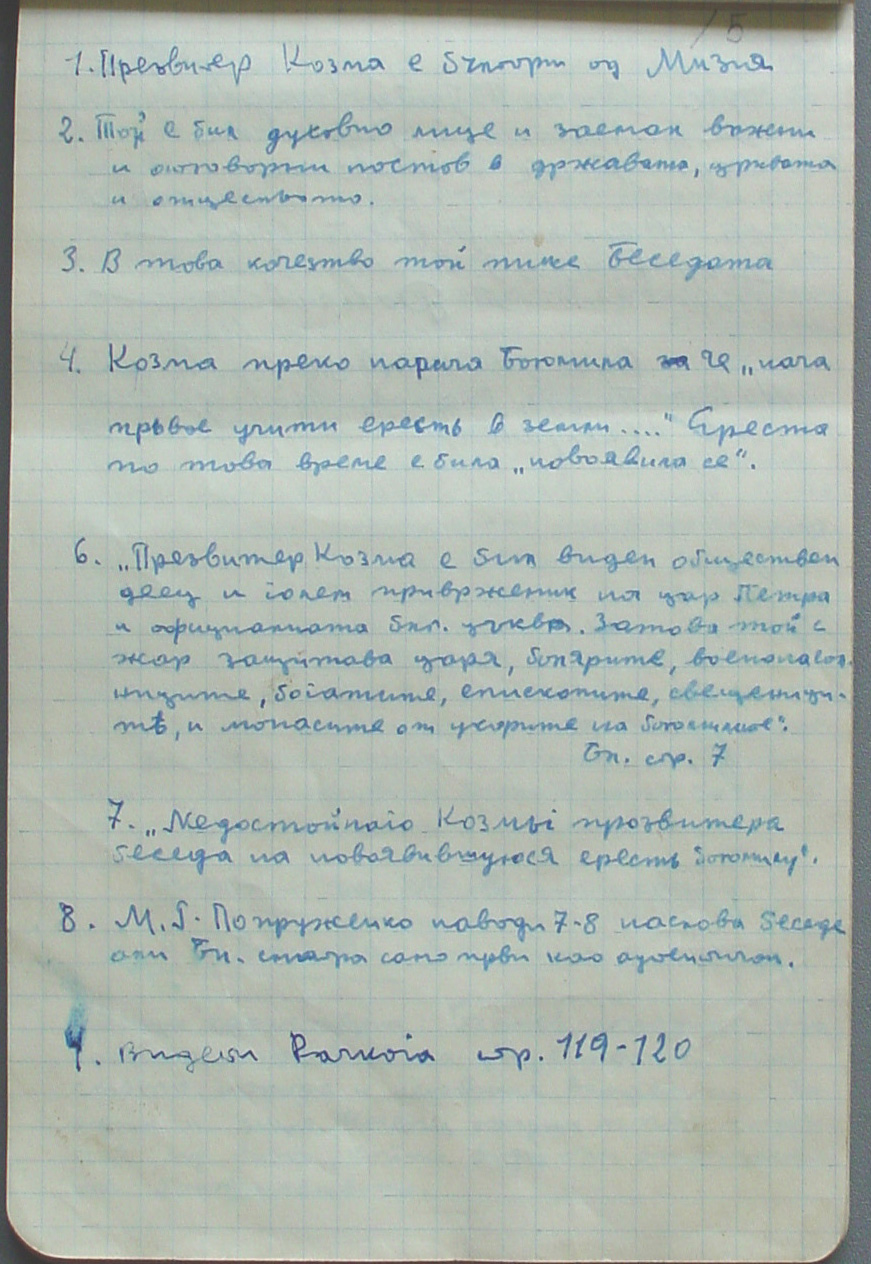 /5
1. Презвитер Козма е од Мизия
2. Той е бил духовно лице и заемал важни
и отговорни постов в државата, црквата
и отществото.
3. В това качество той пише Беседата
4. Козма преко нарича Богомила за че „нача
прьвое учити ересть в земли...." Ереста
по това време е била „новоявила се".
6. „Презвитер Козма е бил виден обществен
деец и голем привржeник на цар Петра
и официалната бъл. църква. Затова той с
жар защитава царя, болярите,
богатите, епископите, свещеници-
тѣ, и монасите от укорите на богомилите".
Бл. стр. 7
7. „Недостойнаго Козмы прозвитера
беседа на новоявившуюся ересть богомилу".
8. М. Г. Попруженко наводи 7-8 наслова беседе
али Бл. сматра само први као аутентичан.
4. Видети Рачкога стр. 119-120